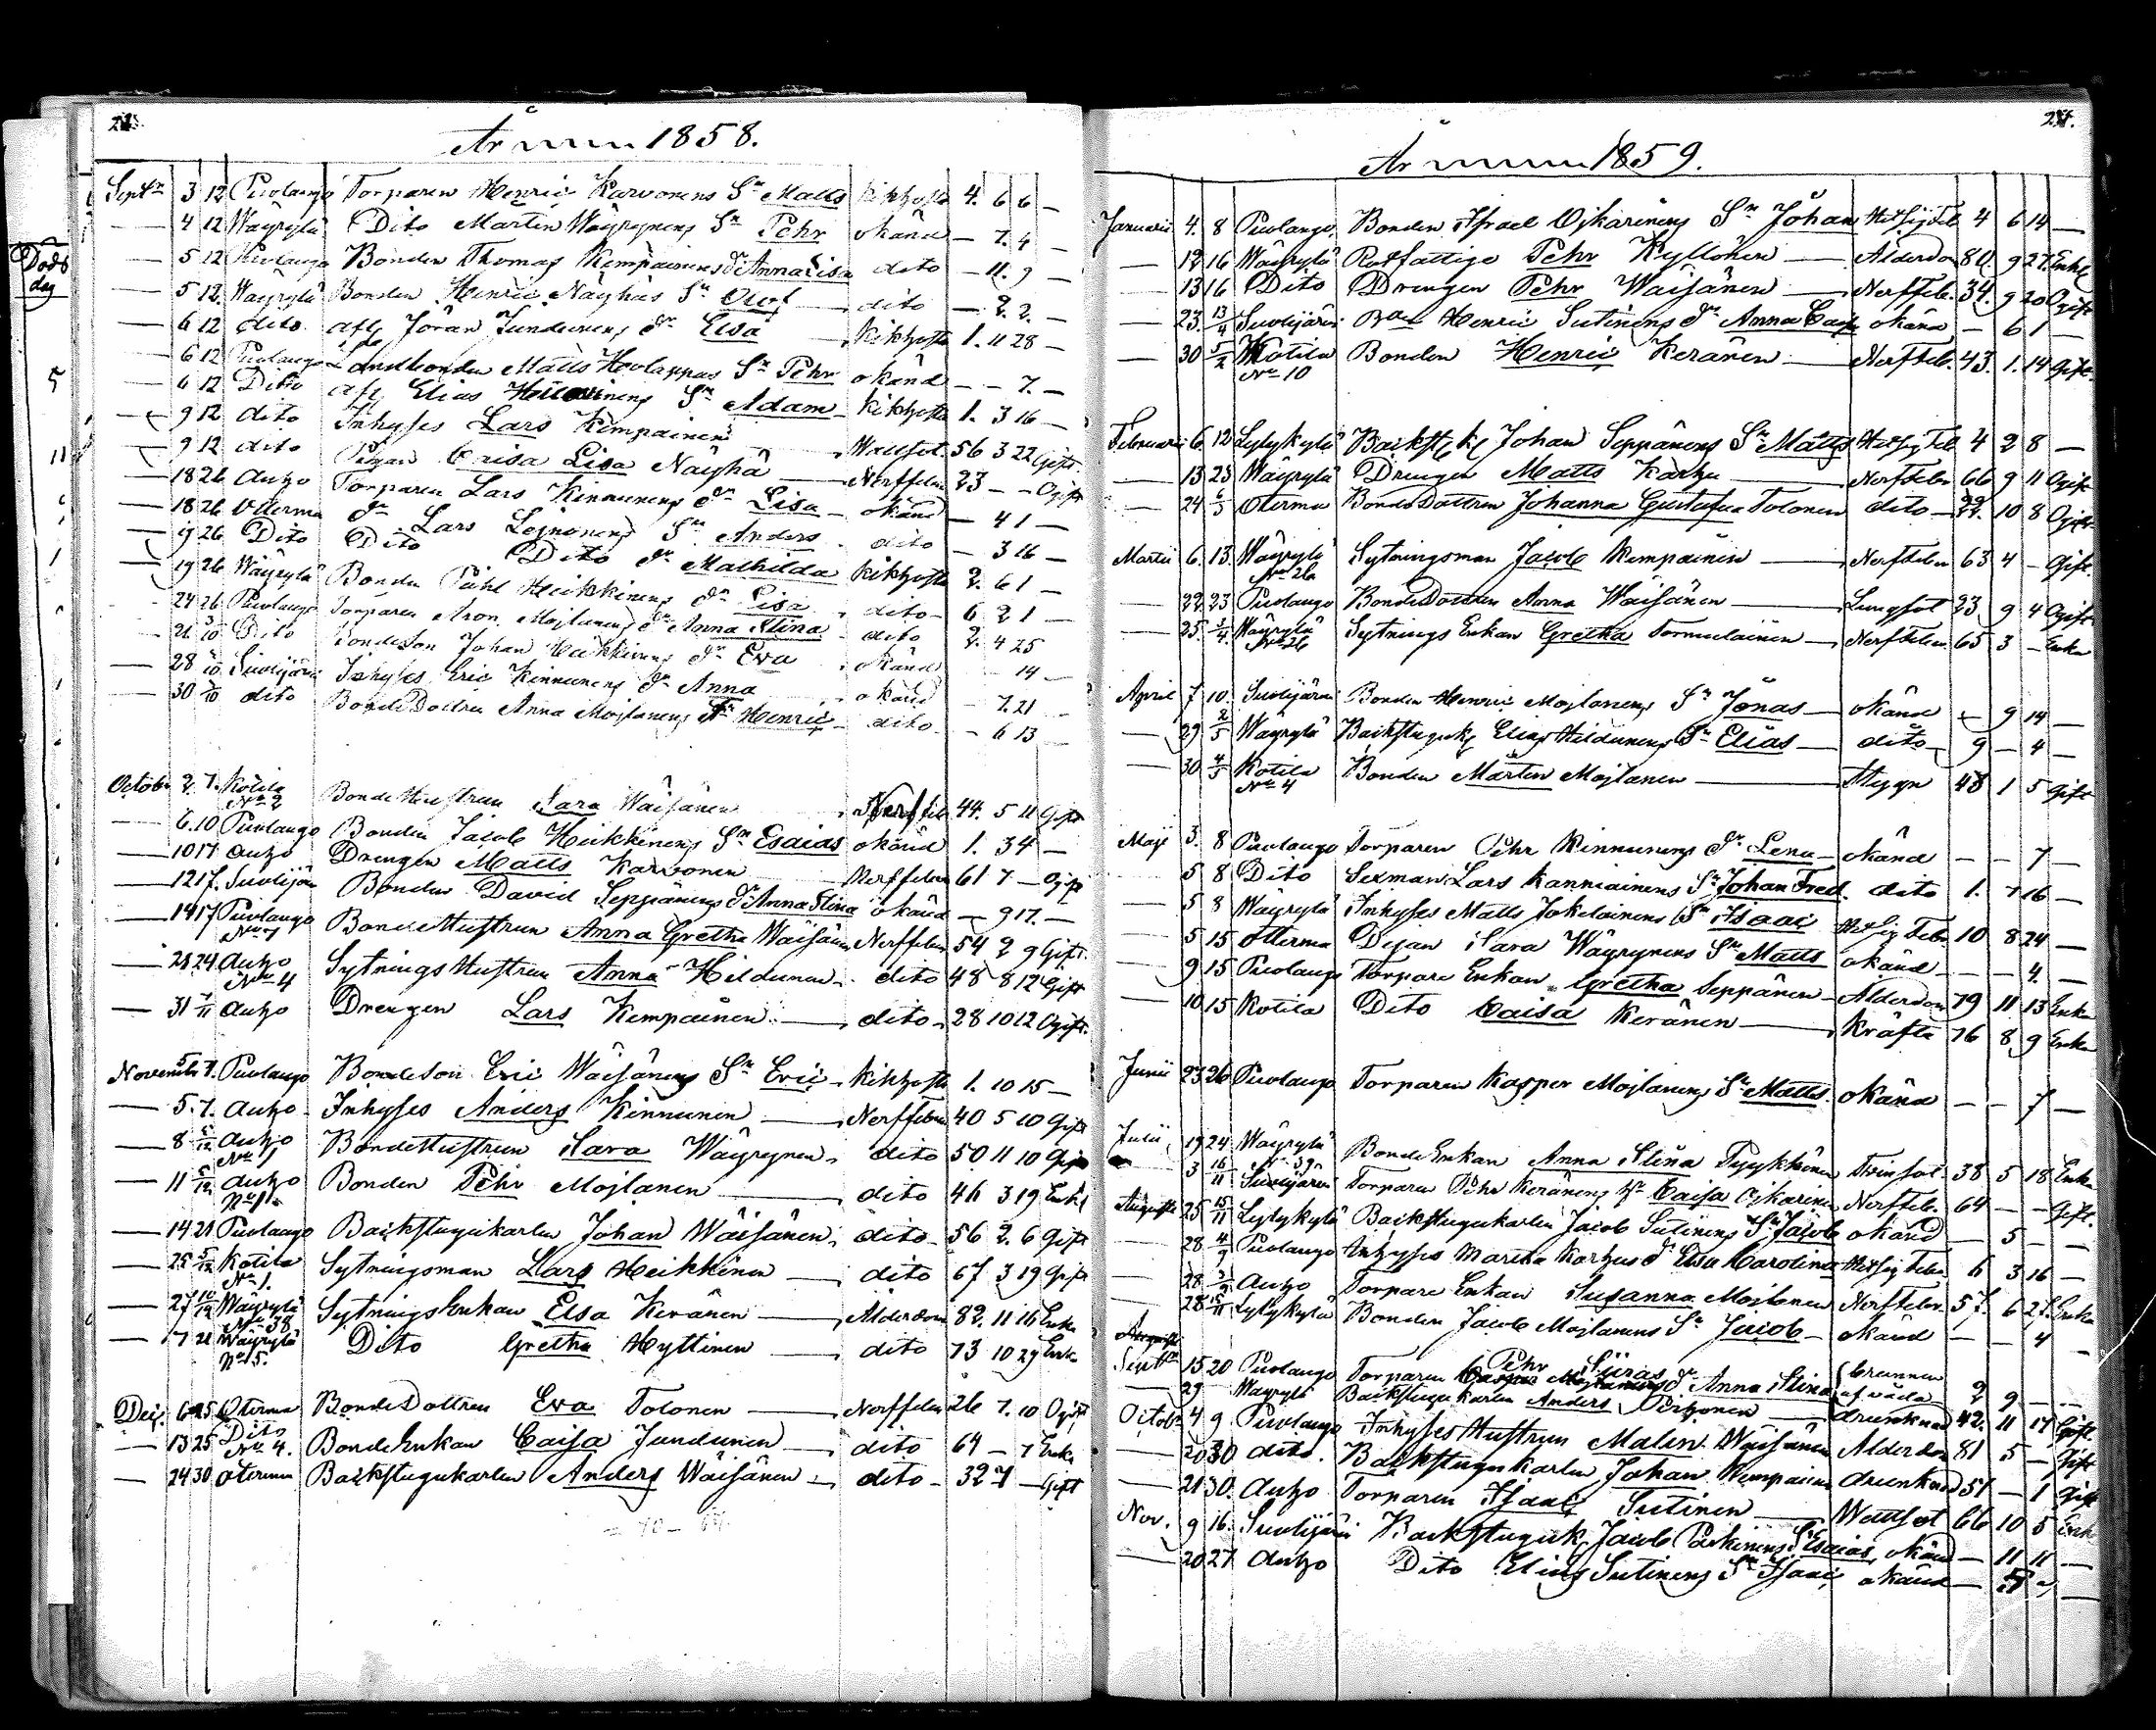 År 1858.
Septr 3 12 Puolango Torparen Henric Karvonens Sn Matts Kikhosta 4. 6 6 —
— 4 12 Wäyrylä Dito Martin Wäyrynens Sn Pehr okänd — 7. 4 —
— 5 12 Puolango Bonden Thomas Kempainens dr Anna Lisa dito — 11. 9 —
— 5 12. Wäyrylä Bonden Henric Näyhäs Sn Olof dito — 2 2. —
— 6 12 dito afl Jöran Jundunens dr Lisa Kikhosta 1. 11 28 —
— 6 12 Puolango Landbonden Matts Holappas Sn Pehr okänd — — 7. —
— 6 12 Dito afl Elias Sn Adam Kikhosta 1. 3 16 —
— 9 12 dito Inhyses Lars Kempainen Wattsot 56 3 22 Gift
— 9 12 dito Pigan Caisa Lisa Näyhä Nerffeber 23 — — Ogift
— 18 26 Auho Torparen Lars Kinnunens dr Lisa okänd — 4 1 —
— 18 26 Uterma dn Lars Leinonens Sn Anders dito — 3 16 —
— 19 26 Dito Dito Dito dr Mathilda Kikhosta 2. 6 1 —
— 19 26 Wäyrylä Bonden Påhl Heikkinens dr Lisa dito 6 2 1 —
24 26 Puolango Torparen Aron Mojlanens dr Anna Stina dito 2. 4 25
— 3/10 Dito Bondeson Johan Heikkinens dr Eva okänd 14 —
— 28 /10 Suolijärvi Inhyses Eric Kinnunens dr Anna okänd — 7. 21 —
— 30 /10 dito BondeDottren Anna Mojlanens Sn Henric dito — 6 13 —
Octobr 2. 7. Kotila No 2 BondeHustrun Sara Wäisänen Nerffeb 44. 5 11 Gift
— 6. 10 Puolango Bonden Jacob Heikkinens Sn Esaias okänd 1. 3 4 —
— 10 17 Auho Drengen Matts Karvonen Nerffeber 61 7 — Ogift
— 12 17. Suolijärvi Bonden David Seppänens dr Anna Stina okänd — 9 17. —
— 14 17 Puolango BondeHustrun Anna Gretha Wäisänen Nerffeber 54 2 9 Gift
— 24 Auho No 4 SytningsHustrun Anna Hildunen dito 48 8 12 Gift
— 31 7/11 Auho Drengen Lars Kempainen dito 28 10 12 Ogift.
November 5 7. Puolango BondeSon Eric Wäisänens Sn Eric Kikhosta 1. 10 15 —
— 5. 7. Auho Inhyses Anders Kinnunen Nerffeber 40 5 10 Gift
— 8 5/12 Auho No 1 BondeHustrun Sara Wäyrynen dito 50 11 10 Gift
— 11 5/12 Auho Bonden Pehr Mojlanen dito 46 3 19 Enkl
— 14 21 Puolango Backstugukarlen Johan Wäisänen dito 56 2. 6 Gift
— 25 5/12 Kotila No 1. Sytningsman Lars Heikkinen dito 67 3 19 Gift
— 27 10/12 Wäyrylä No 38 SytningsEnkan Elsa Keränen Ålderdom 82. 11 16 Enka
— 7 21 Wäyrylä No 15. Dito Gretha Hyttinen dito 73 10 29 Enka
Dec. 6 25 Oterma BondeDottren Eva Tolonen Nerffeber 26 7. 10 Ogift
— 13 25 Dito No 4. BondeEnkan Caisa Jundunen dito 64 — 7 Enka
— 24 30 Oterma Backstugukarlen Anders Wäisänen dito 32 7 — Gift
Döds
dag
5
11
År 1859.
Januarii 4. 8 Puolango Bonden Israel Ojkarinens Sn Johan HetsigFeb 4 6 14 —
— 12 16 Wäyrylä Rotfattige Pehr Kyllönen Ålderdom 80 9 27. Enkl
— 13 16 Dito Drengen Pehr Wäisänen Nerffeb. 34. 9 20 Ogift
— 23. 13/4 Suolijärvi Henric Sutinens dr Anna Caisa okänd — 6 1 —
— 30 5/2 Kotila No 10 Bonden Henric Keränen Nerffeb. 43. 1. 14 Gift.
Februarii 6. 12 Lylykylä Backstk Johan Seppänens Sn Matts HetsigFeb 4 2 8 —
— 13. 23 Wäyrylä Drengen Matts Karhu Nerffeber 66 9 11 Ogift
— 24 6/3 Oterma BondeDottren Johanna Gustafva Tolonen dito 22. 10 8 Ogift
Martii 6. 13. Wäyrylä No 26 Sytningsman Jacob Kempainen Nerffeber 63 4 — Gift.
— 22. 23 Puolango BondeDottren Anna Wäisänen Lungsot 23 9 4 Ogift
— 25. 3/4. Wäyrylä No 26 Sytnings Enkan Gretha Tormulainen Nerffeber 65 3 — Enka
April 7 10. Suolijärvi Bonden Henric Mojlanens Sn Jonas okänd — 9 14 —
— 29 2/5 Wäyrylä Backstuguk Elias Hildunens Sn Elias dito 9 — 4 —
— 30 4/5 Kotila No 4 Bonden Mårten Mojlanen Stygn 48 1 5 Gift
Maji 3. 8 Puolango Torparen Pehr Kinnunens dr Lena okänd — — 7 —
5 8 Dito Sexman Lars Kanniainens Sn Johan Fred. dito 1. 7 16 —
— 5 8 Wäyrylä Inhyses Matts Jokelainens Sn Isaac Hetsig Feb. 10 8 24 —
— 5 15 Otterma Pigan Sara Wäyrynens Sn Matts okänd — — 4. —
— 9 15 Puolango Torpare Enkan Gretha Seppänen Ålderdom 79 11 13 Enka
— 10 15 Kotila Dito Caisa Keränen Kräfta 76 8 9 Enka
Junii 23 26 Puolango Torparen Kasper Mojlanens Sn Matts okänd — — 7 —
Julii 19 24 Wäyrylä 39 BondeEnkan Anna Stina Tyykkönen Tvinsot 38 5 18 Enka
3 16/11 Suolijärvi Torparen Pehr Keränens Hu Caisa Ojkarinen Nerffeb. 64 — — Gift.
Augusti 25 15/11 Lylykylä Backstugukarlen Jacob Sutinens Sn Jacob okänd — 5 — —
— 28 4/9 Puolango Inhyses Martha Karhus dr Elsa Carolina Hetsig Feber 6 3 16 —
— 28 Auho Torpare Enkan Susanna Mojlanen Nerffeber 57. 6 27. Enka
28 15/11 Lylykylä Bonden Jacob Mojlanens Sn Jacob okänd — — 4 —
Septbr 15 20 Puolango Torparen Pehr dr Anna Stina brunnen af våda 2 9 — —
— 29 Wäyrylä Backstugukarlen Anders Pirhonen drunknad 42. 11 17 Gift.
Octobr 4 9 Puolango InhysesHustrun Malin Wäisänen Ålderdom 81 5 — Gift
— 20 30 dito. Backstugukarlen Johan Kempainen drunknad 51 — 1 Gift
— 21 30. Auho Torparen Isaac Sutinen Wattsot 66 10 5 Enkl
Nov. 9 16. Suolijärvi Backstuguk Jacob Parkinens Sn Esaias okänd — 11 11 —
— 20 27 Auho Dito Elias Sutinens Sn Isaac okänd —